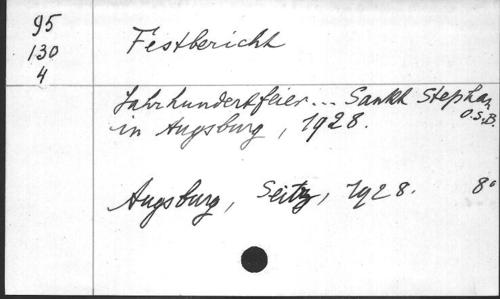 95
130
4
Festbericht
Jahrhundertfeier... Sankt Stephan
O.S.B.
in Augsburg, 1928.
Augsburg, Seitz, 1928. 8°